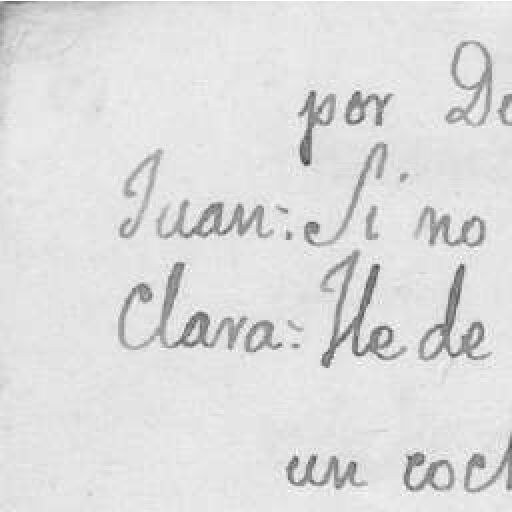 por De
Juan: Si no
Clara: He de
un coch